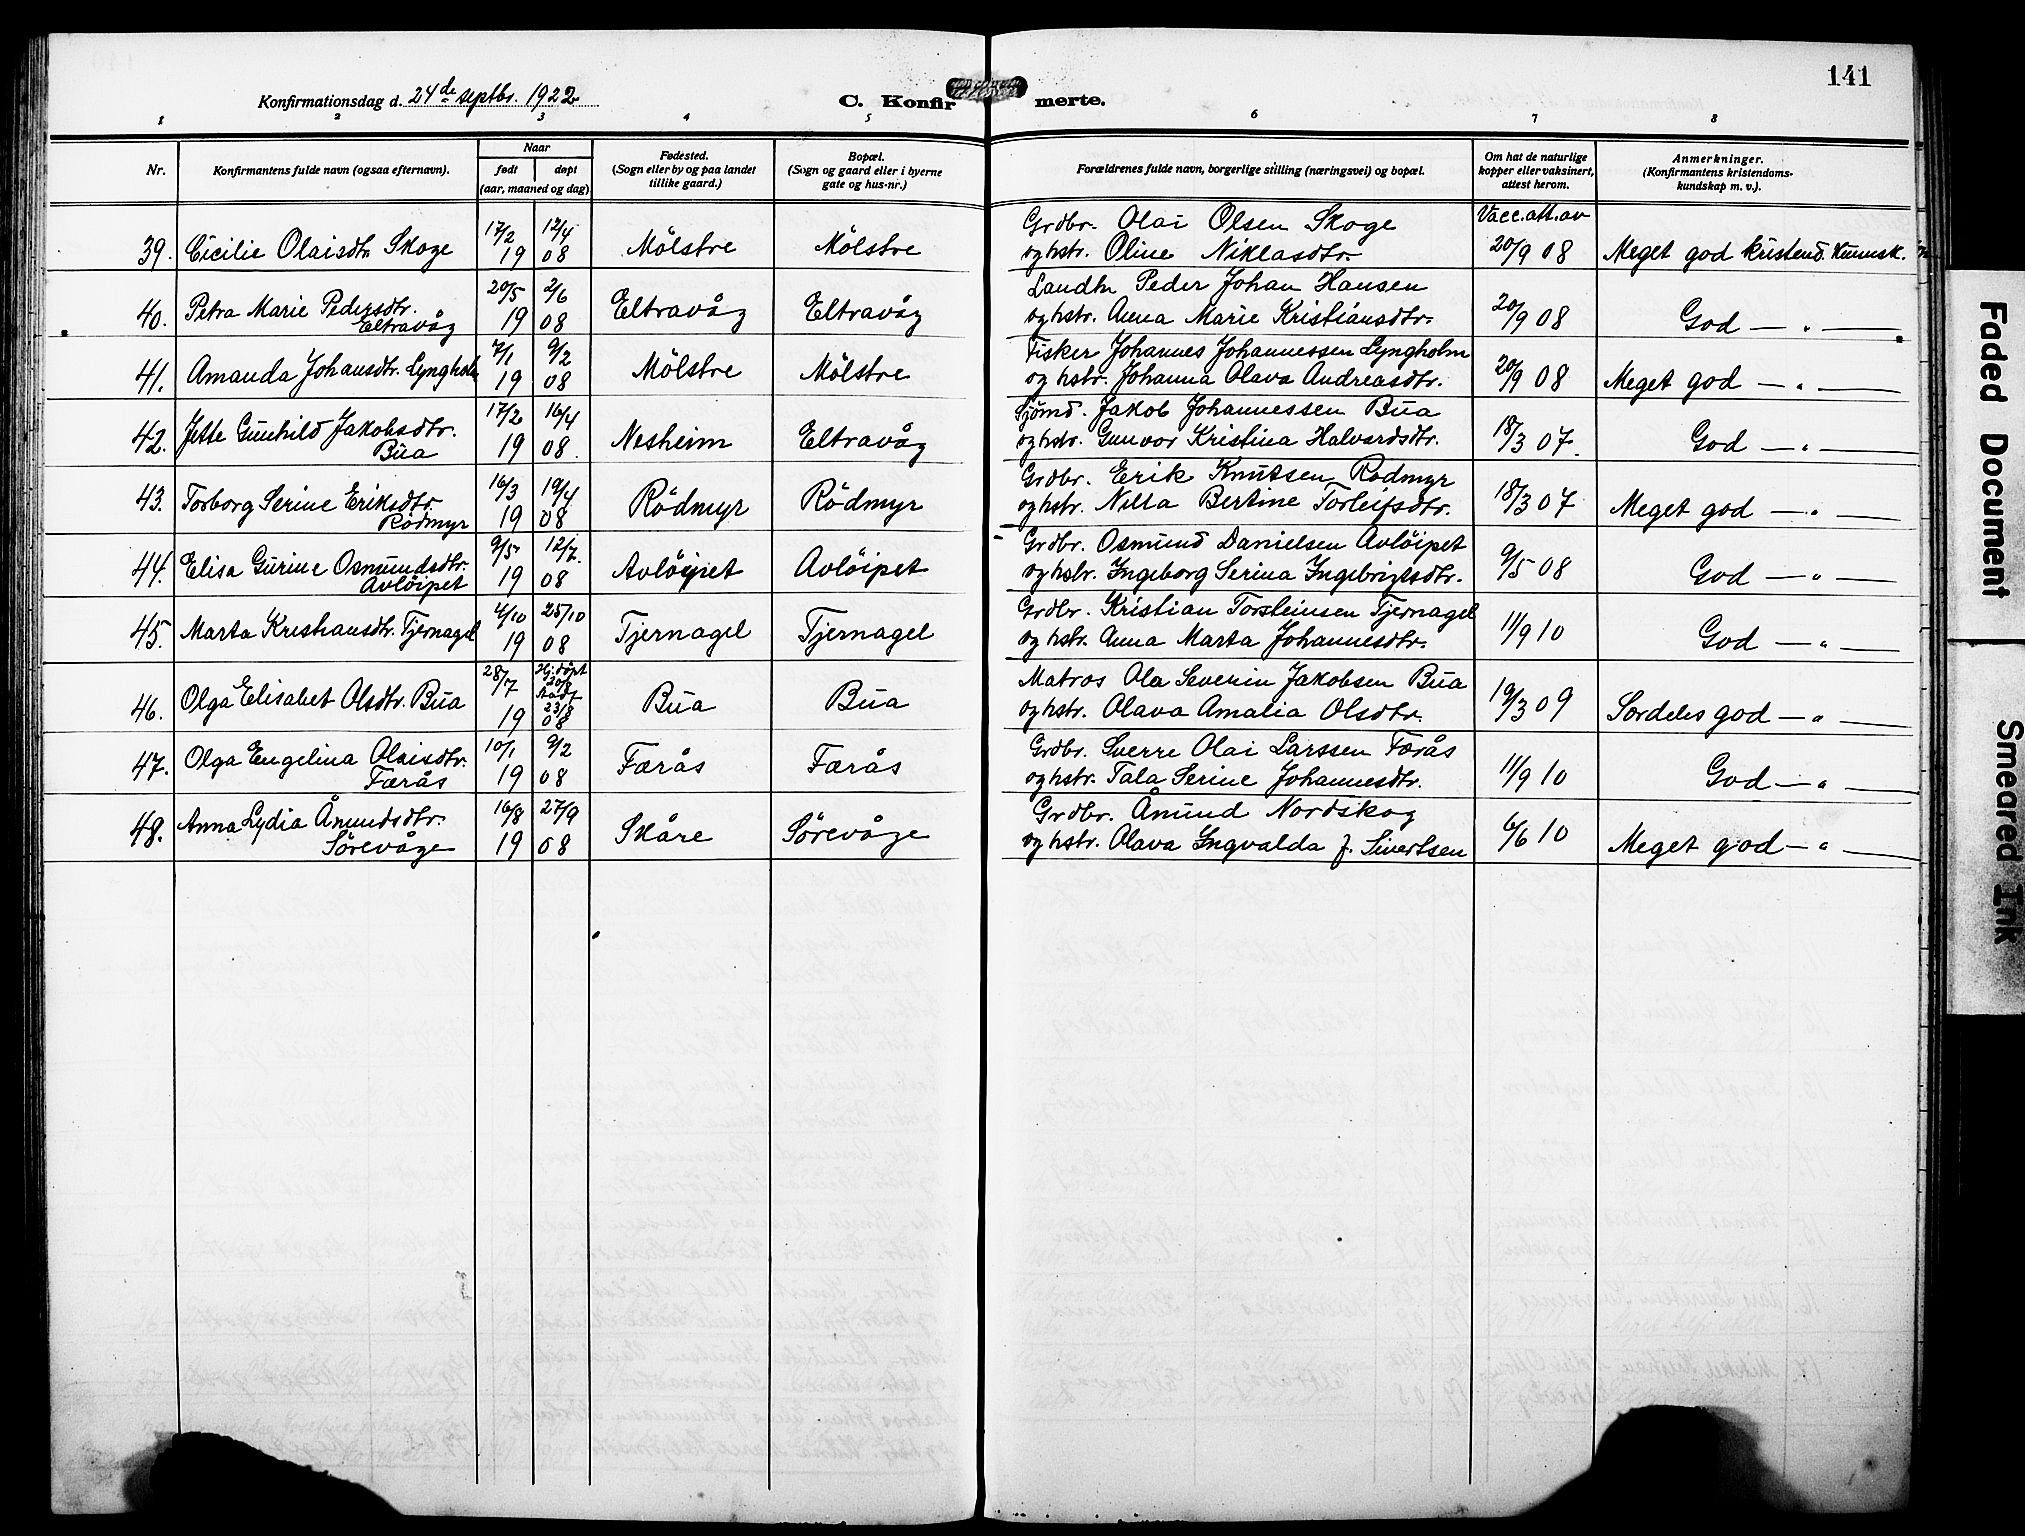 141
Konfirmationsdag d. 24de septbr. 1922
C. Konfir merte.
1 2 3 4 5 6 7 8
Nr. Konfirmantens fulde navn (ogsaa efternavn). Naar født døpt (aar, maaned og dag) Fødested. (Sogn eller by og paa landet tillike gaard.) Bopæl. (Sogn og gaard eller i byerne gate og hus-nr.) Forældrenes fulde navn, borgerlige stilling (næringsvei) og bopæl. Om hat de naturlige kopper eller vaksinert, attest herom. Anmerkninger. (Konfirmantens kristendoms-kundskap m. v.).
17/2 12/4 Grdbr. Olai Olsen Skoge Vacc. att. av
39. Cicilie Olaisdtr. Skoge 19 08 Mölstre Mölstre og hstr. Oline Niklasdtr. 20/9 08 Meget god kristend. kunnsk.
40. Petra Marie Pedersdtr. 20/5 2/6 Eltravåg Eltravåg Landhn Peder Johan Hansen
Eltravåg 19 08 og hstr. Anna Marie Kristiansdtr. 20/9 08 God — " —
7/1 9/2 Fisker Johannes Johannessen Lyngholm
41. Amanda Johansdtr. Lyngholm 19 08 Mölstre Mölstre og hstr. Johanna Olava Andreasdtr. 20/9 08 Meget god — " —
42. Jette Gunhild Jakobsdtr. 17/2 16/4 Sjömd. Jakob Johannessen Büa
Büa 19 08. Nesheim Eltravåg og hstr. Gunvor Kristina Halvardsdtr. 18/3 07. God — " —
43. Torborg Serine Eriksdtr. 16/3 19/4 Rödmyr Rödmyr Grdbr. Erik Knutsen Rödmyr
Rödmyr 19 08 og hstr. Nilla Bertine Torleifsdtr. 18/3 07 Meget god — " —
44. Elisa Gurine Osmundsdtr. 9/5 12/7. Avlöipet Avlöipet Grdbr. Osmund Danielsen Avlöipet
Avlöipet 19 08 og hstr. Ingeborg Serina Ingebrigtsdtr. 9/5 08 God — " —
4/10 25/10 Grdbr. Kristian Torsteinsen Tjernagel
45. Marta Kristiansdtr. Tjernagel 19 08 Tjernagel Tjernagel og hstr. Anna Marta Johannesdtr. 11/9 10 God — " —
28/7 Hj. döpt 23/8 Matros Ola Severin Jakobsen Büa
46. Olga Elisabet Olsdtr. Büa 19 08 Büa Büa og hstr. Olava Amalia Olsdtr. 19/3 09 Særdeles god — " —
47. Olga Engelina Olaisdtr. 10/1 9/2 Færås Færås Grdbr. Sverre Olai Larssen Færås
Færås 19 08 og hstr. Tala Serine Johannesdtr. 11/9 10 God — " —
48. Anna Lydia Åmundsdtr. 16/8 27/9 Skåre Sörevåge Grdbr. Åmund Nordskog
Sörevåge 19 08 og hstr. Olava Ingvalda f. Sivertsen 6/6 10 Meget god — " —
Faded Document
Smeared Ink